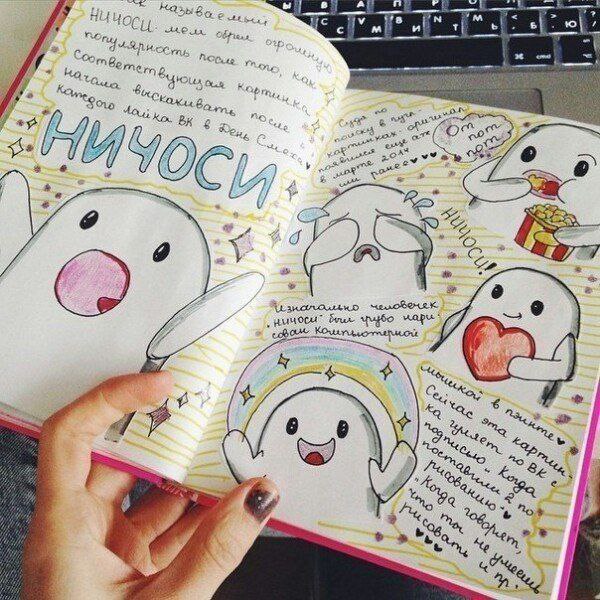 так называемый
НИЧОСИ- мем обрел огромную
популярность после того, как
соответствующая картинка
начала выскакивать после
каждого лайка ВК в День Смеха
НИЧОСИ
Судя по
поиску в гугл
картинкам- оригинал
появился еще аж
в марте 2014
или ранее
От
пот
пот
НИЧОСИ!
Изначально человечек
"ничоси" был грубо нари
сован компьютерной
мышкой в пэинте
Сейчас эта картин
ка гуляет по ВК с
подписью "Когда
поставили 2 по
рисованию"
"Когда говорят,
что ты не умеешь
рисовать и пр.